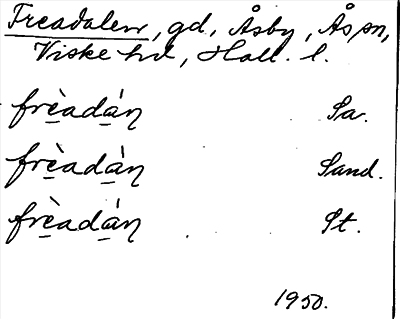 Freadalen, gd, Åsby, Åsn,
Viske hd, Hall. l.
frèadáṇ Sa.
frèadáṇ Sand.
frèadáṇ St.
1950.